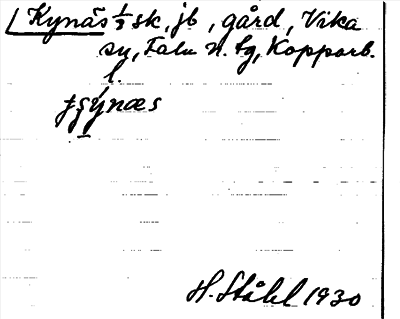 Kynäs 1/3 sk, jb, gård, Vika
sn, Falu n. tg, Kopparb.
l.
H. Ståhl 1930